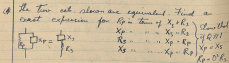 the two ckts shown are equivalent. Find a
exact expression for Rp = terms of Xs + Rs
Xp = " " " Xs + Rs
Rs = " " " Xp + Rp
Xs = " " " Xp + Rp
Show that
if Q≥11
Xp = Xs
Rp = Q² Rs
Rp Xp = Xs Rs